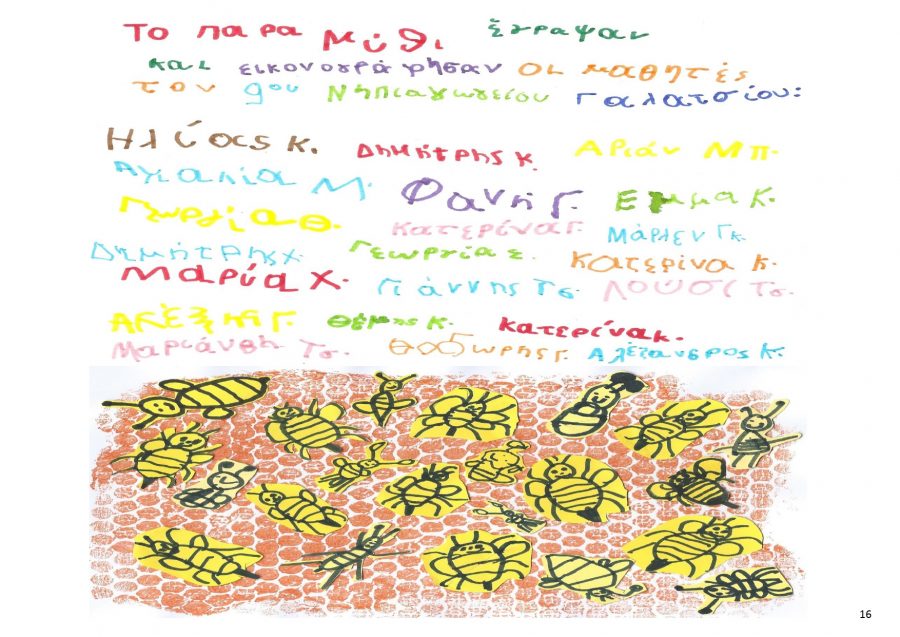 Το παρα μύθι έγραψαν
και εικονογράφησαν οι μαθητές
του 9ου Νηπιαγωγείου Γαλατσίου:
Ηλύας Κ. Δημήτρης Κ. Αριάν Μπ.
Αγιαλία Μ. Φανή Γ. Εμμα Κ.
Γεωργία Θ. Κατερίνα Γ. Μάρλεν Γκ.
Δημήτρης Χ. Γεωργία Σ. Κατερίνα Κ.
Μαρύα Χ. Γιάννης Τσ. Λουσι Τσ.
Θέμης Κ. Κατερίνα Κ.
Μαριάνθη Τσ. Γ. Αλέξανδρος Κ.
16